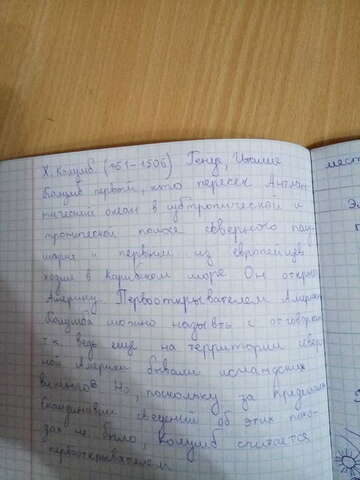 Х. Колумб. (1451-1506) Генуя, Италия
Колумб первым, кто пересек Атлан-
тический океан в субтропической и
тропической полосе северного полу-
шария и первым из европейцев
ходил в карибском море Он открыл
Америку. Первооткрывателем Америки
Колумба можно назвать с отговоркой
т.к. ведь еще на территории север-
ной Америки бывали исландских
викингов Но, поскольку за пределами
Скандинавии сведений об этих похо-
дах не было, Колумб считается
первооткрывателем
мест
Эл